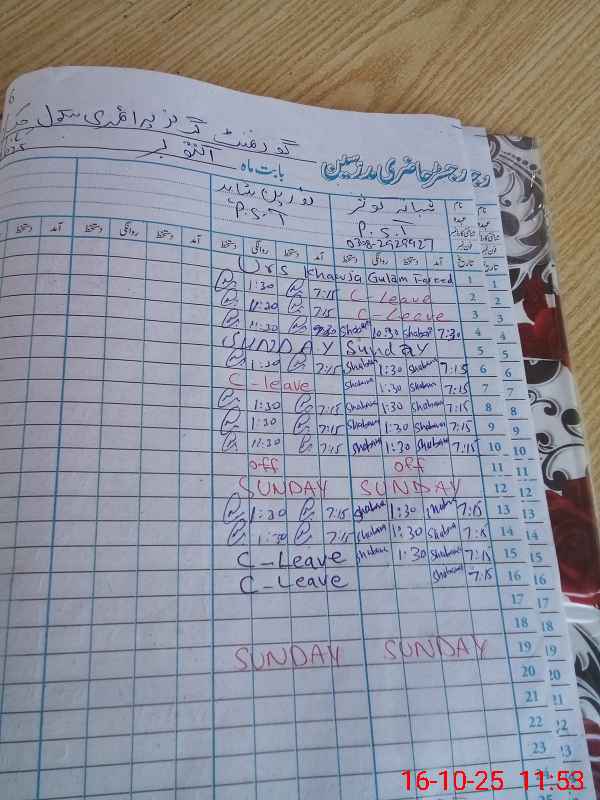 گورنمنٹ گرلز پرائمری سکول
رجسٹر حاضری مدرسین
بابت ماہ اکتوبر
نام شبانہ کوثر نورین شاہد
عہدہ P.S.T P.S.T
0308-2929927
تاریخ آمد دستخط روانگی دستخط آمد دستخط روانگی دستخط آمد دستخط روانگی دستخط آمد دستخط
1 Urs Khawja Gulam Fareed
2 C-Leave 7:15 1:30
3 C-Leave 7:15 11:30
4 7:30 Shabana 10:30 Shabana 7:30 11:30
5 Sunday SUNDAY
6 7:15 Shabana 1:30 Shabana 7:15 1:30
7 7:15 Shabana 1:30 Shabana C-leave
8 7:15 Shabana 1:30 Shabana 7:15 1:30
9 7:15 Shabana 1:30 Shabana 7:15 1:30
10 7:15 Shabana 1:30 Shabana 7:15 11:30
11 off off
12 SUNDAY SUNDAY
13 7:15 Shabana 1:30 Shabana 7:15 1:30
14 7:15 Shabana 1:30 Shabana 7:15 1:30
15 7:15 Shabana 1:30 Shabana C-Leave
16 7:15 Shabana C-Leave
17
18
19 SUNDAY SUNDAY
20
21
22
23
24
16-10-25 11:53